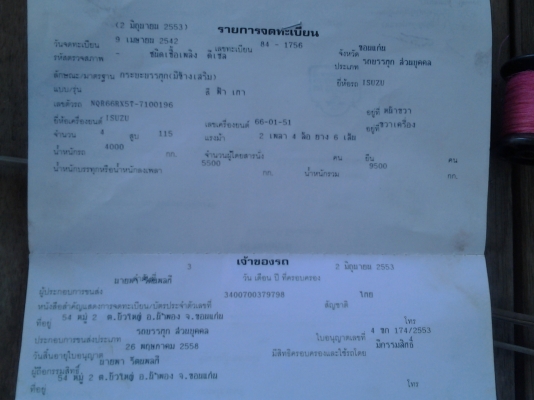 (2 มิถุนายน 2553) รายการจดทะเบียน
วันจดทะเบียน 9 เมษายน 2542 เลขทะเบียน 84 - 1756 จังหวัด ขอนแก่น
รหัสตรวจสภาพ - ชนิดเชื้อเพลิง ดีเซล ประเภท รถบรรทุก ส่วนบุคคล
ลักษณะ/มาตรฐาน กระบะบรรทุก(มีข้างเสริม) ยี่ห้อรถ ISUZU
แบบ/รุ่น สี ฟ้า เทา
เลขตัวรถ อยู่ที่
ยี่ห้อเครื่องยนต์ ISUZU เลขเครื่องยนต์ 66-01-51 อยู่ที่ ขวาเครื่อง
จำนวน 4 สูบ 115 แรงม้า 2 เพลา 4 ล้อ ยาง 6 เส้น
น้ำหนักรถ 4000 กก. จำนวนผู้โดยสารนั่ง คน ยืน คน
น้ำหนักบรรทุกหรือน้ำหนักลงเพลา 5500 กก. น้ำหนักรวม 9500 กก.
เจ้าของรถ
ลำดับที่ 3 วัน เดือน ปี ที่ครอบครอง 2 มิถุนายน 2553
ผู้ประกอบการขนส่ง
หนังสือสำคัญแสดงการจดทะเบียน/บัตรประจำตัวเลขที่ 3400700379798 สัญชาติ ไทย
ที่อยู่ 54 หมู่ 2 จ.ขอนแก่น โทร
ประกอบการขนส่งประเภท รถบรรทุก ส่วนบุคคล ใบอนุญาตเลขที่ 4 ขก 174/2553
วันสิ้นอายุใบอนุญาต 26 พฤษภาคม 2558 มีสิทธิครอบครองและใช้รถโดย มีกรรมสิทธิ์
ผู้ถือกรรมสิทธิ์
ที่อยู่ 54 หมู่ 2 จ.ขอนแก่น โทร